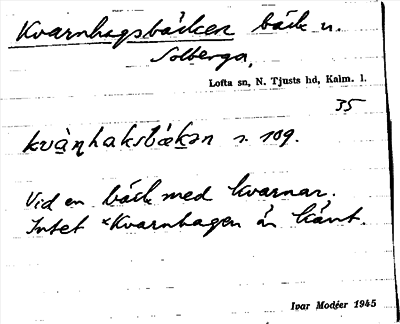 Kvarnhagsbäcken bäck n.
Solberga,
Lofta sn, N. Tjusts hd, Kalm. l.
35
kvàɳhaksbækən s. 109.
Vid en bäck med kvarnar.
Intet *Kvarnhagen är känt.
Ivar Modéer 1945